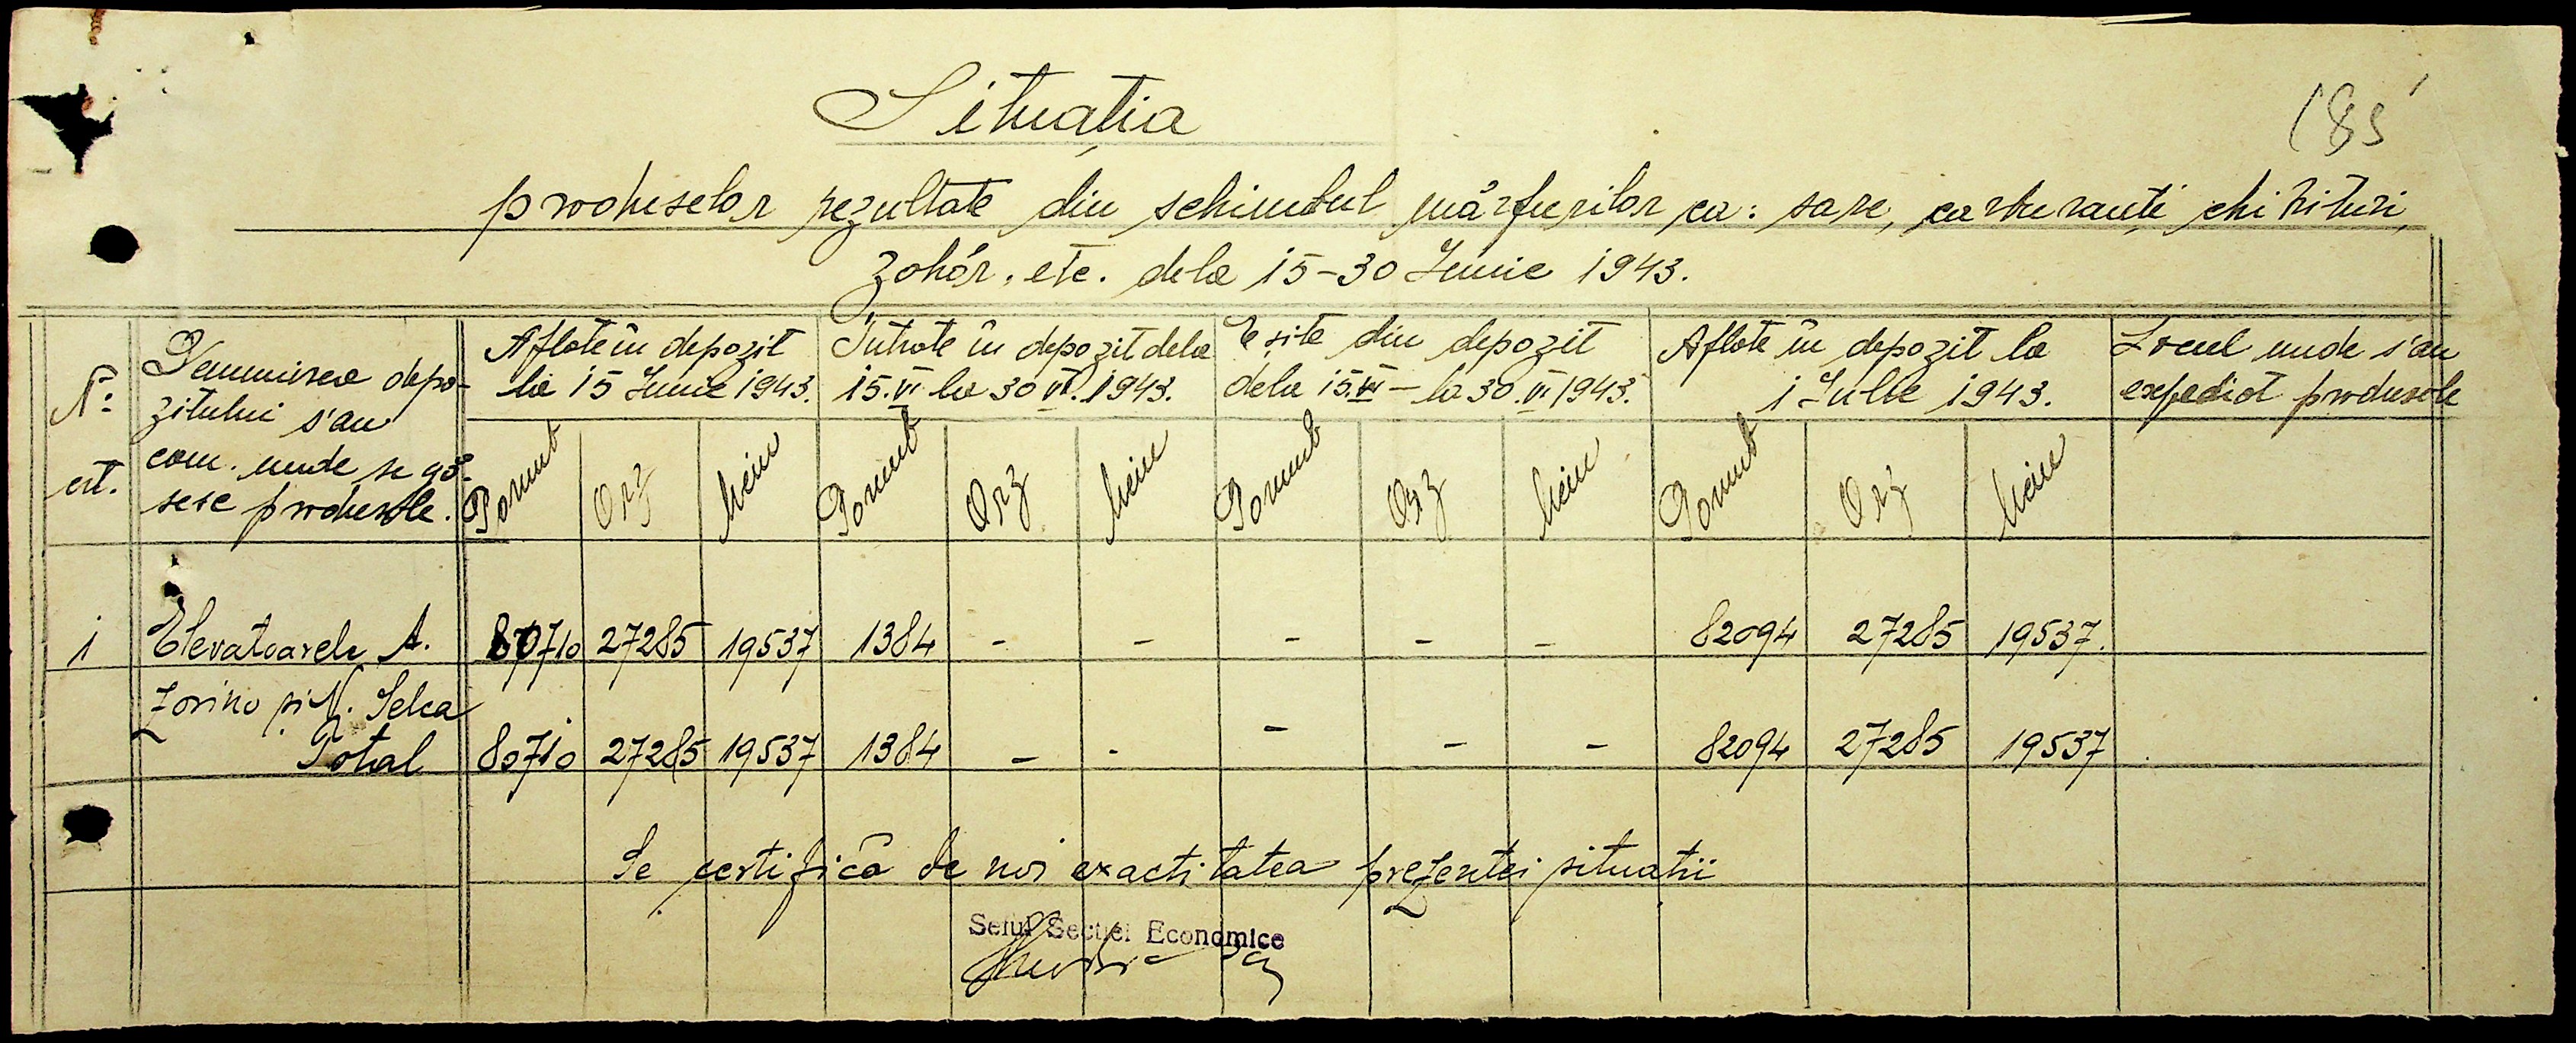 Situația
185
produselor rezultate din schimbul mărfurilor ca: sare, carburanți chibrituri,
zahăr, etc. dela 15-30 Iunie 1943.
No. crt.
Denumirea depo-
zitului s'au
com. unde se gă-
sesc produsele.
Aflate în depozit
la 15 Iunie 1943.
Intrate în depozit dela
15.VI. la 30 VI. 1943.
Eșite din depozit
dela 15.VI – la 30.VI.1943.
Aflate în depozit la
1 Iulie 1943.
Locul unde s'au
expediat produsele
Porumb Orz Mein Porumb Orz Mein Porumb Orz Mein Porumb Orz Mein
1 Elevatoarele A. 80710 27285 19537 1384 - - - - - 82094 27285 19537.
Zorino și N. Selca
Total 80710 27285 19537 1384 - - - - - 82094 27285 19537
Se certifică de noi exactitatea prezentei situații
Șeful Secției Economice